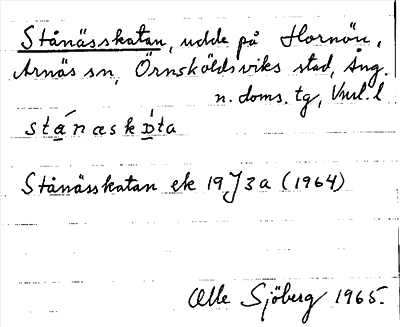 Stånässkatan, udde på Hornön,
Arnäs sn, Örnsköldsviks stad, Ång.
n. doms. tg, Vnrl. l
stánæskɒ̀ta
Stånässkatan ek 19J3a (1964)
Olle Sjöberg 1965.